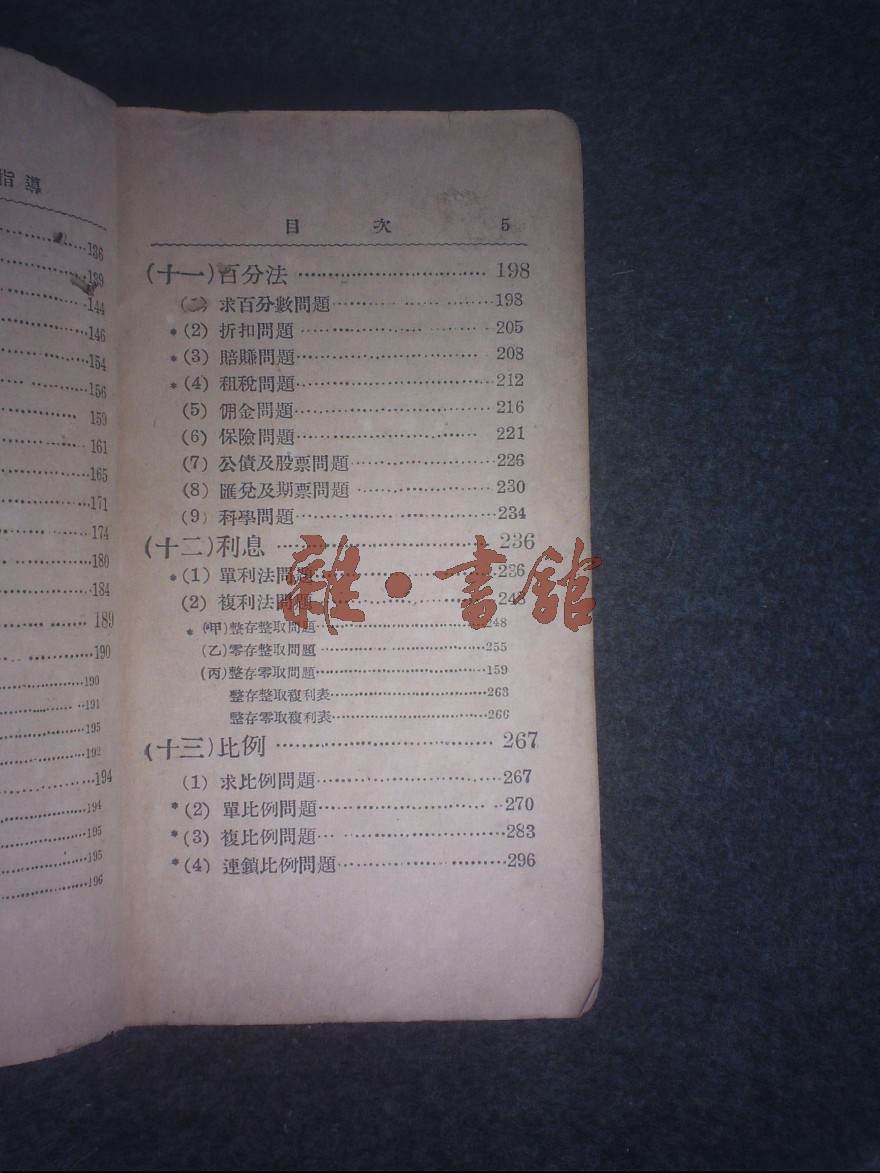 指導
136
139
144
146
154
156
159
161
165
171
174
180
184
189
190
190
191
195
192
194
194
195
195
196
目次 5
(十一)百分法 198
求百分數問題 198
*(2) 折扣問題 205
*(3) 賠賺問題 208
*(4) 租稅問題 212
(5) 佣金問題 216
(6) 保險問題 221
(7) 公債及股票問題 226
(8) 匯兌及期票問題 230
(9) 科學問題 234
(十二)利息 236
*(1) 單利法問題 236
(2) 複利法問題 248
*(甲)整存整取問題 248
(乙)零存整取問題 255
(丙)整存零取問題 159
整存整取複利表 263
整存零取複利表 266
(十三)比例 267
(1) 求比例問題 267
*(2) 單比例問題 270
*(3) 複比例問題 283
*(4) 連鎖比例問題 296
雜·書館